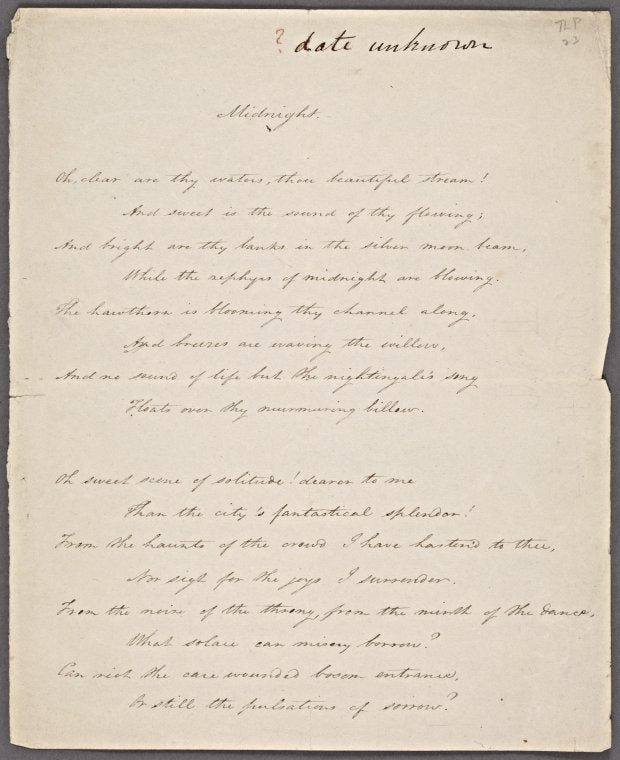 ? date unknown
TLP
23
Midnight.
Oh, clear are thy waters, thou beautiful stream!
And sweet is the sound of thy flowing;
And bright are thy banks in the silver moon beam,
While the zephyrs of midnight are blowing.
The hawthorn is blooming thy channel along,
And breezes are waving the willow,
And no sound of life but the nightingale's song
Floats over thy murmuring billow.
Oh sweet scene of solitude! dearer to me
Than the city's fantastical splendor!
From the haunts of the crowd I have hasten'd to thee,
Nor sigh for the joys I surrender.
From the noise of the throng, from the mirth of the dance,
What solace can misery borrow?
Can riot the care wounded bosom entrance,
Or still the pulsations of sorrow?